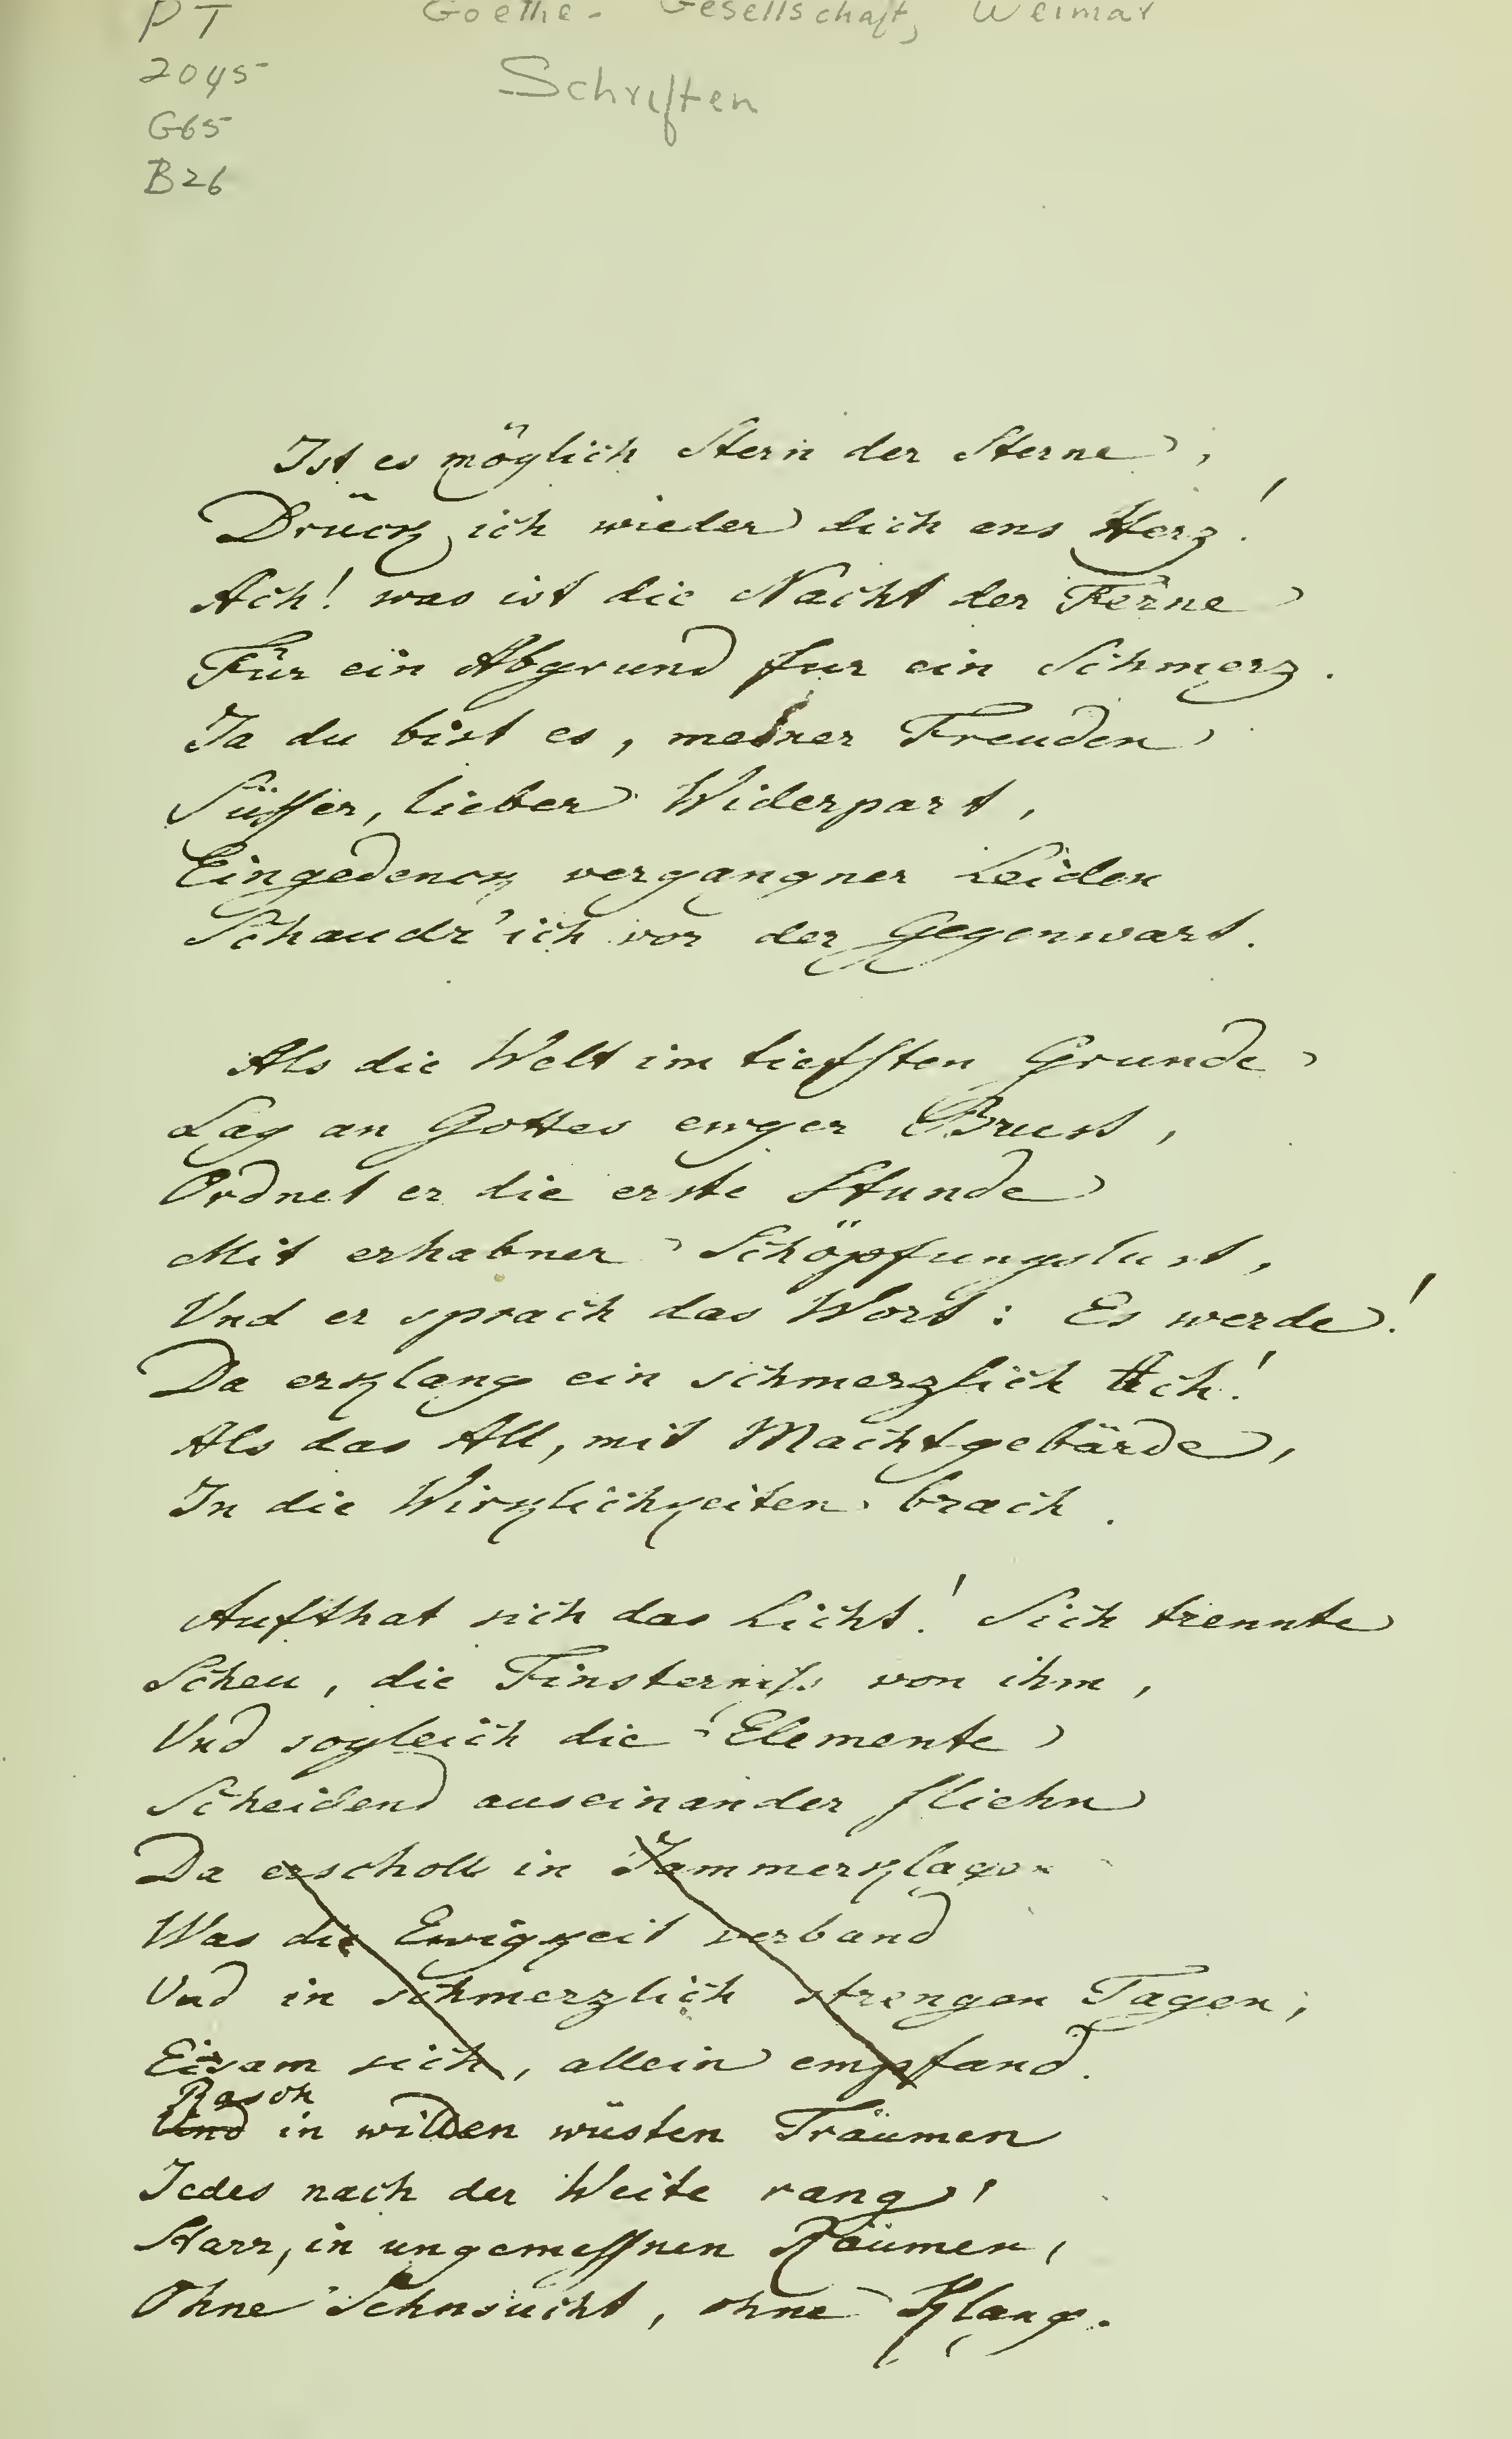 PT
Goethe-Gesellschaft, Weimar
2045
Schriften
G65
B26
Ist es möglich Stern der Sterne,
Drück ich wieder dich ans Herz!
Ach! was ist die Nacht der Ferne
Für ein Abgrund fur ein Schmerz.
Ja du bist es, meiner Freuden
Süsser, lieber Widerpart,
Eingedenck vergangner Leiden
Schaudr' ich vor der Gegenwart.
Als die Welt im tiefsten Grunde
Lag an Gottes ewger Brust,
Ordnet er die erste Stunde
Mit erhabner Schöpfungslust,
Und er sprach das Wort: Es werde!
Da erklang ein schmerzlich Ach!
Als das All, mit Machtgebärde,
In die Wirklichkeiten brach.
Aufthat sich das Licht! Sich trennte
Scheu, die Finsterniss von ihm,
Und sogleich die Elemente
Scheidend auseinander fliehn
Da erscholl in Jammerklagen
Was die Ewigkeit verband
Und in schmerzlich strengen Tagen,
Eisam sich, allein empfand.
Rasch
Und in wilden wüsten Träumen
Jedes nach der Weite rang,
Starr, in ungemessnen Räumen,
Ohne Sehnsucht, ohne Klang.